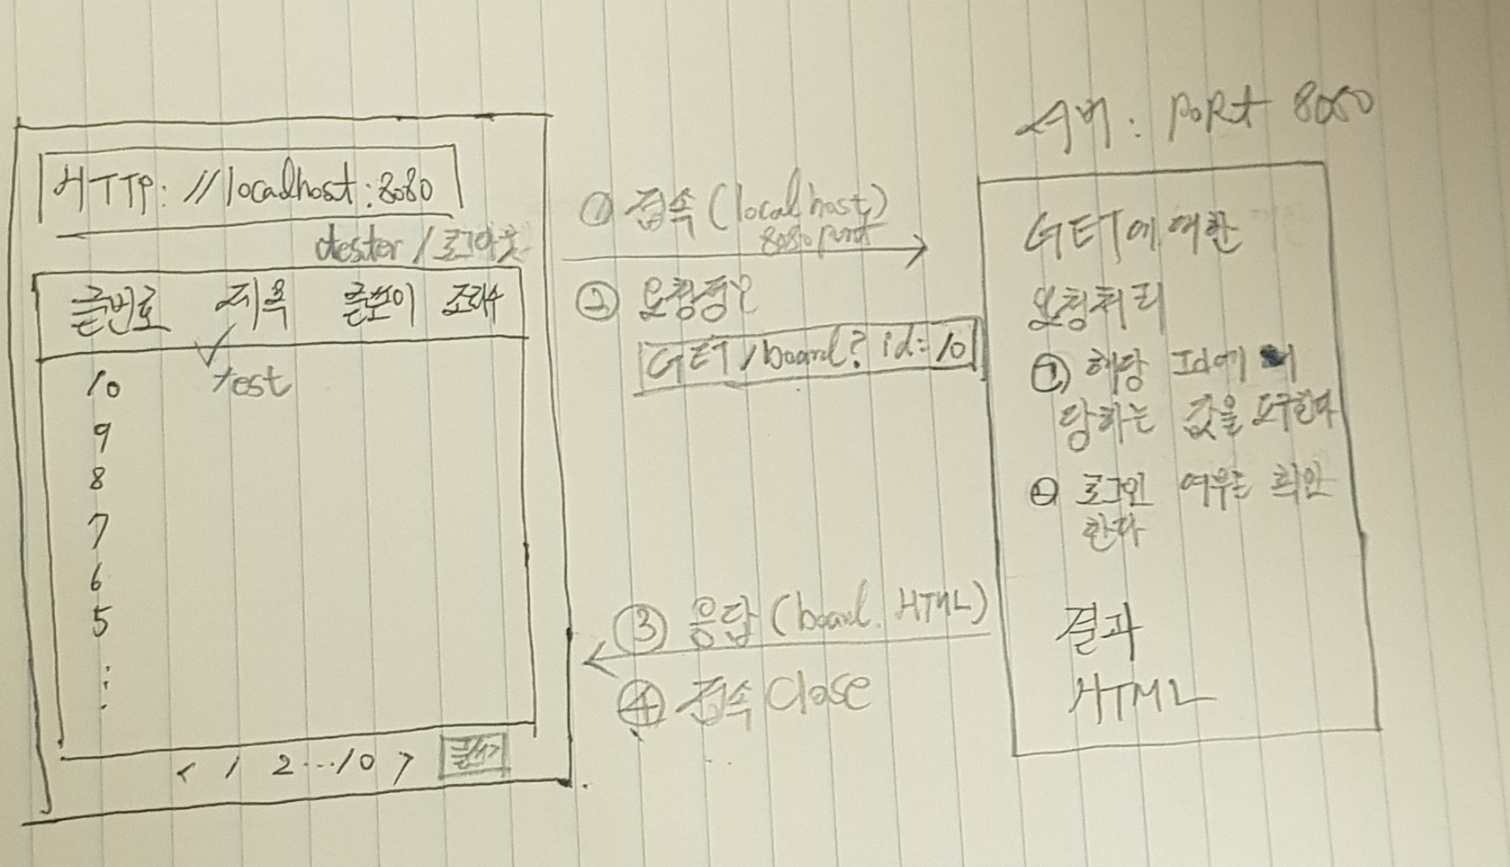 HTTP: //localhost:8080
tester / 로그아웃
글번호 제목 글쓴이 조회수
10 test
9
8
7
6
5
< 1 2 ... 10 >
글쓰기
① 접속 (localhost)
8080 port
② 요청정보
GET /board? id=10
③ 응답 (board. HTML)
④ 접속 Close
서버 : PoRt 8080
GET에 대한
요청처리
① 해당 Id에 해
당하는 값을
② 로그인 여부를 확인
한다
결과
HTML